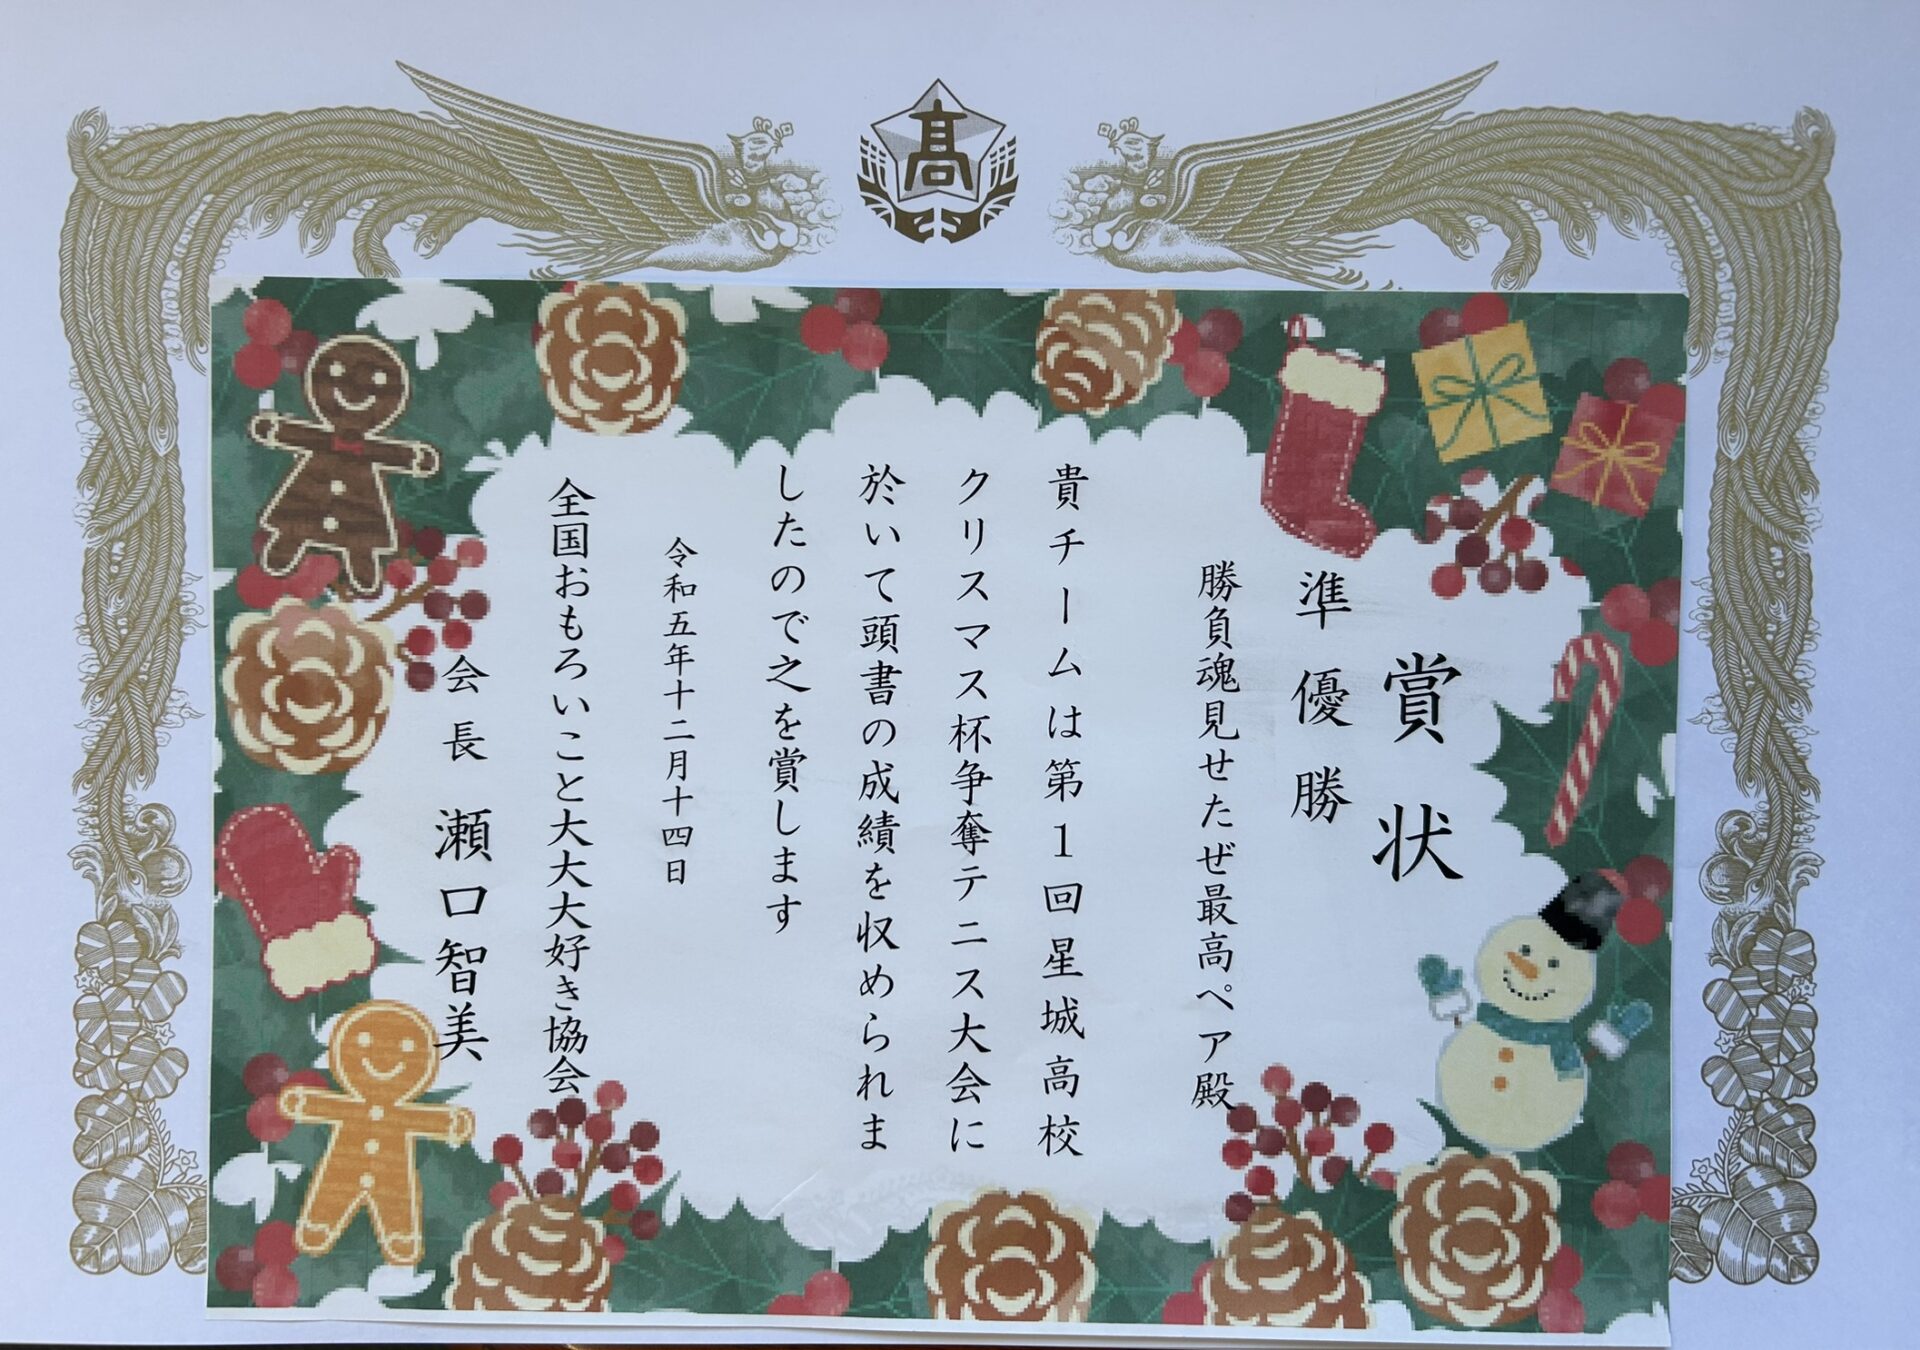 髙
賞状
準優勝
勝負魂見せたぜ最高ペア殿
貴チームは第1回星城高校
クリスマス杯争奪テニス大会に
於いて頭書の成績を収められま
したので之を賞します
令和五年十二月十四日
全国おもろいこと大大大好き協会
会長 瀬口智美